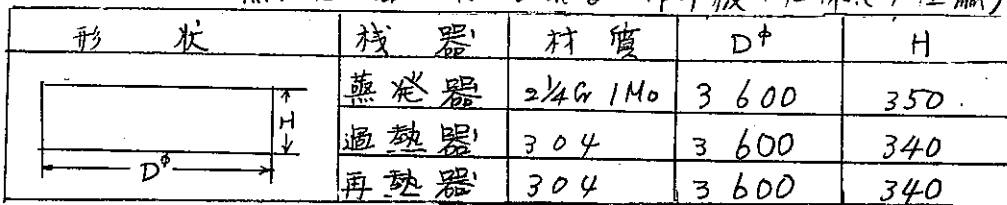 形 状 桟 器 材 質 D^φ H
蒸発器 2¼Cr 1Mo 3 600 350.
H
過熱器 304 3 600 340
D^φ
再熱器 304 3 600 340